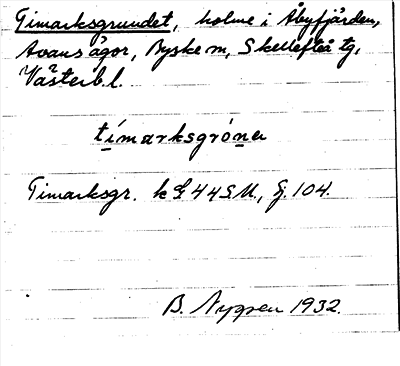 Timarksgrundet, holme i Åbyfjärden,
Avans ägor, Byske sn, Skellefteå tg,
Västerb. l.
tímarksgróne
Timarksgr. k G. 44 S.U., Ej. 104.
B. Nygren 1932.